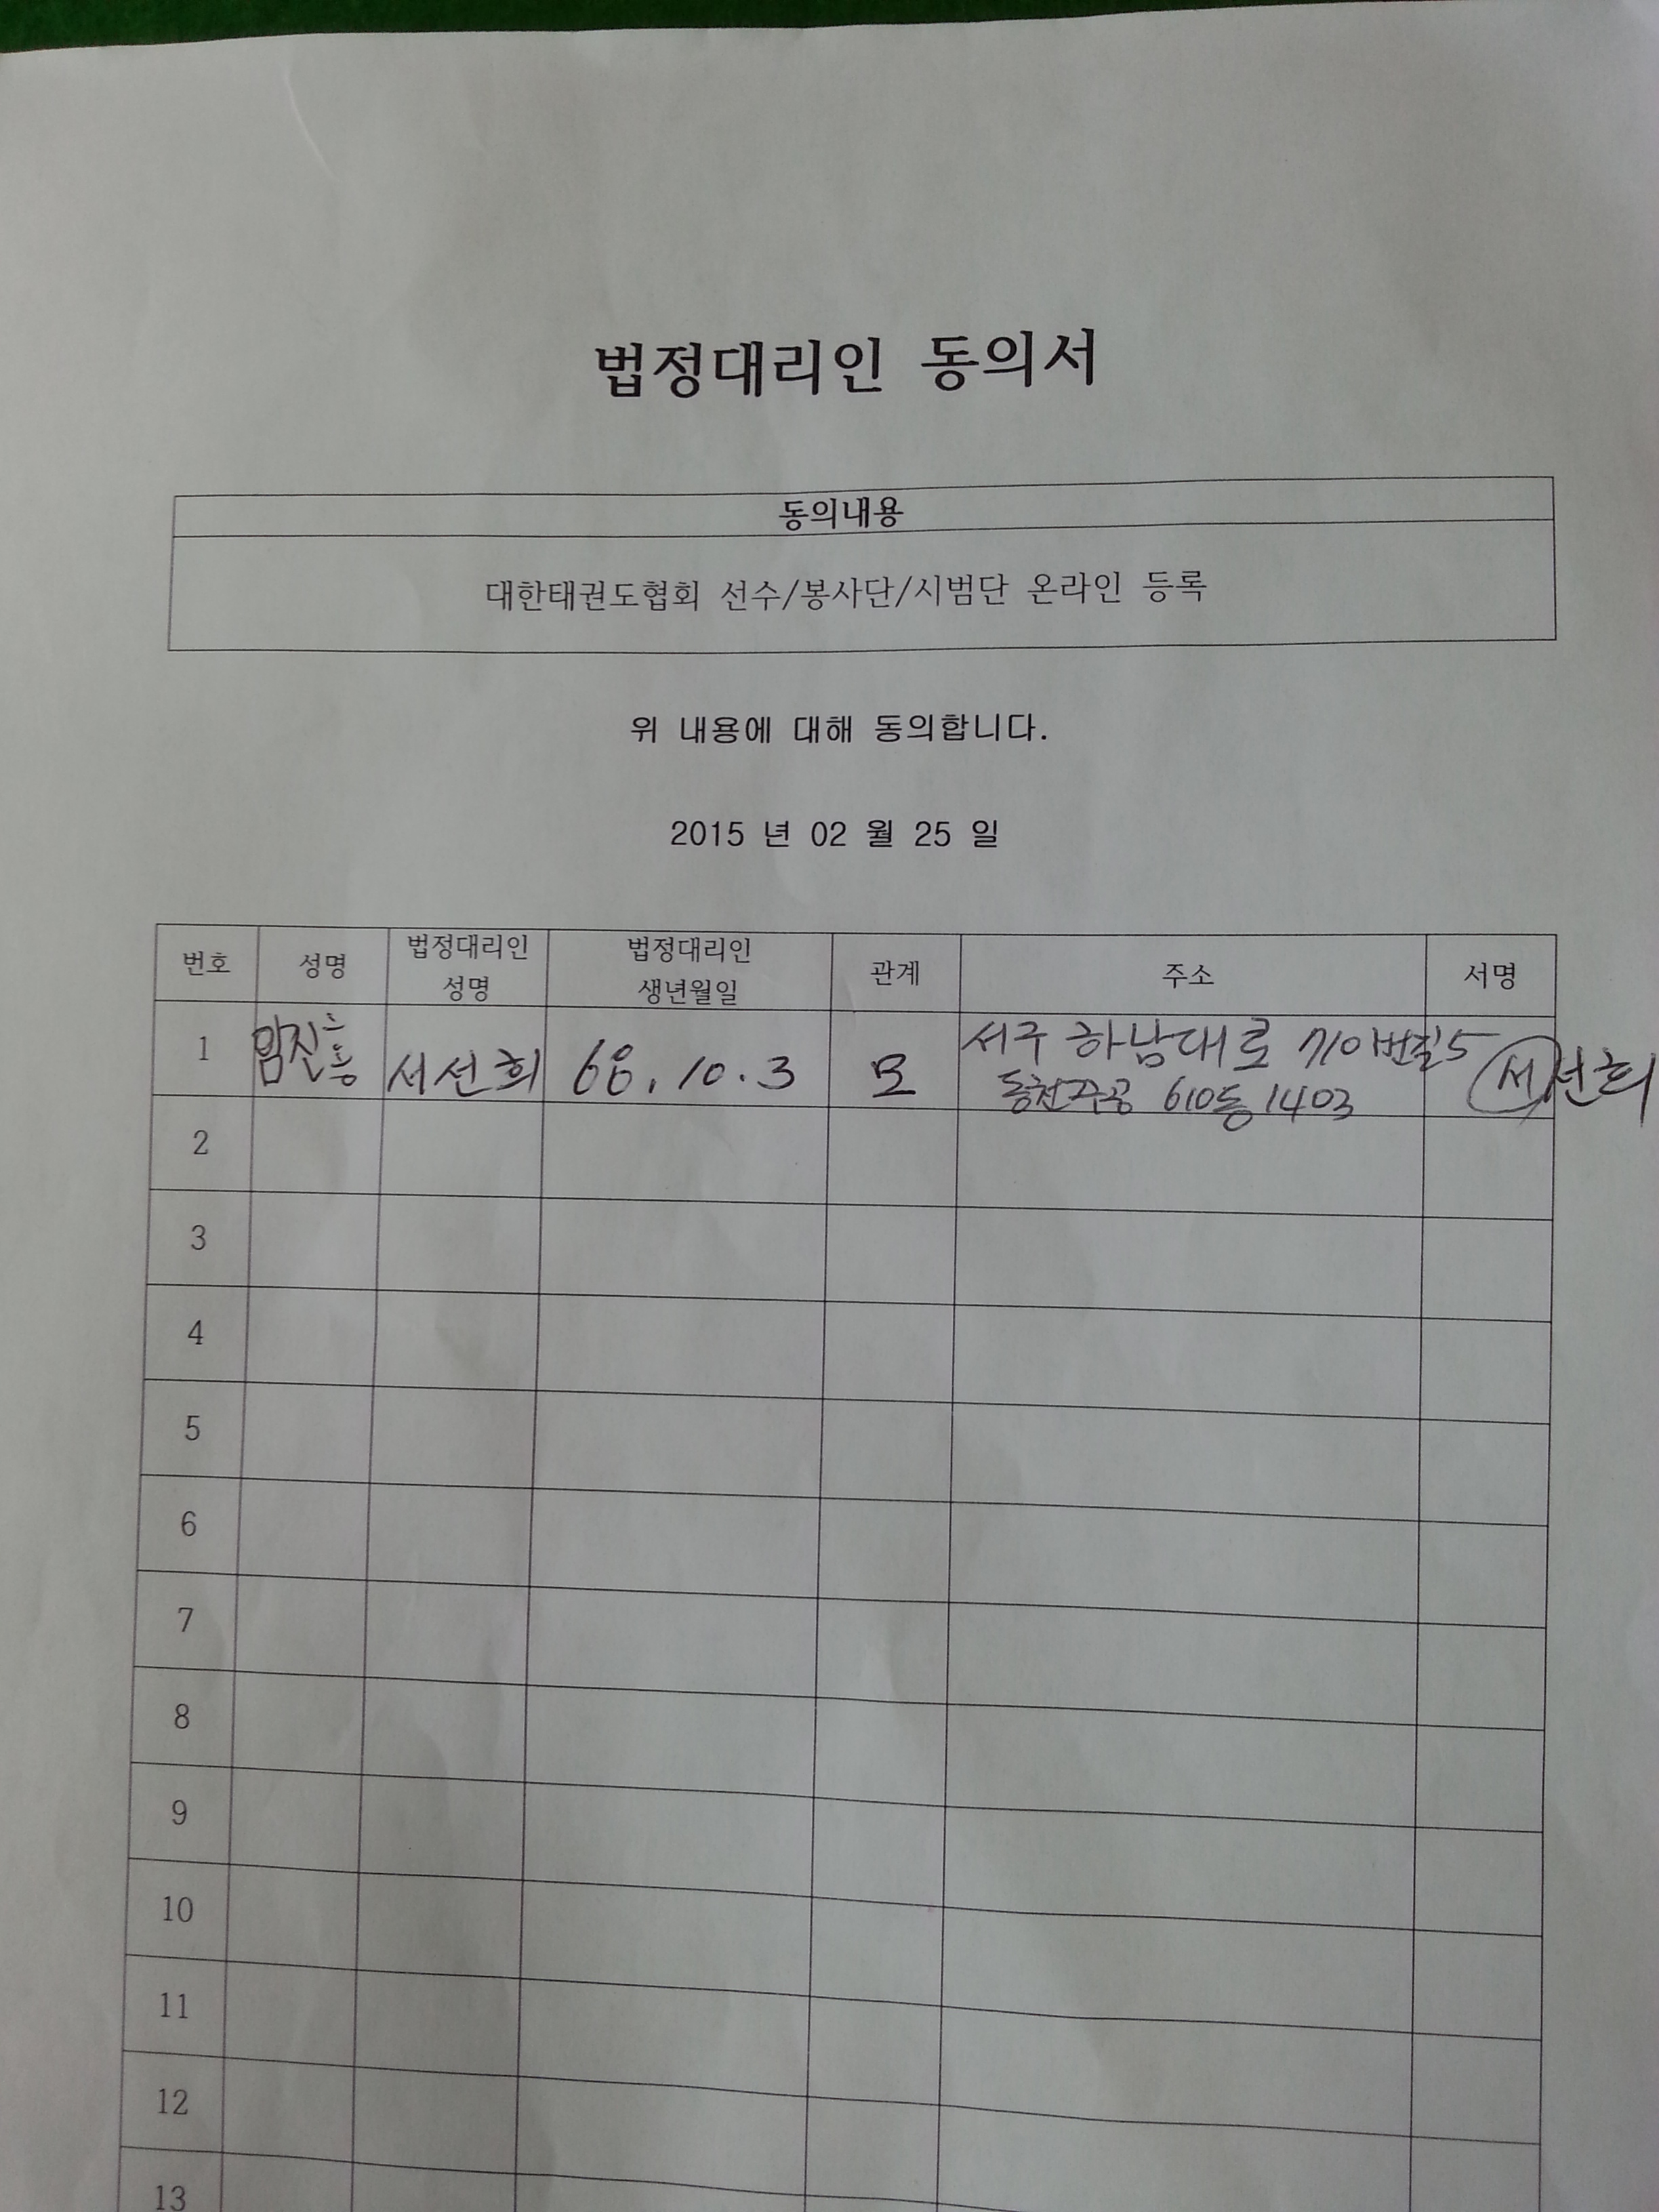 법정대리인 동의서
동의내용
대한태권도협회 선수/봉사단/시범단 온라인 등록
위 내용에 대해 동의합니다.
2015 년 02 월 25 일
번호 성명 법정대리인 성명 법정대리인 생년월일 관계 주소 서명
1 서선희 68. 10. 3 모 서구 하남대로 710번길 5 서선희
동천주공 610동 1403
2
3
4
5
6
7
8
9
10
11
12
13